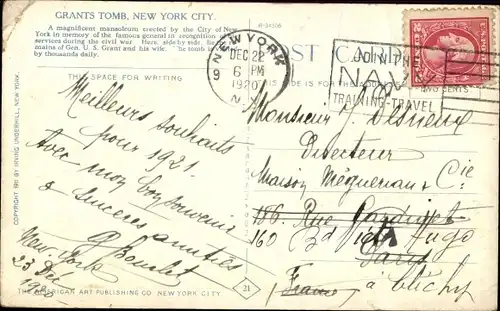 GRANTS TOMB, NEW YORK CITY.
A magnificent mausoleum erected by the City of New
York in memory of the famous general in recognition of his
services during the civil war. Here, side by side, lie the re-
mains of Gen. U. S. Grant and his wife. The tomb is
by thousands daily.
THIS SPACE FOR WRITING
Meilleurs souhaits
pour 1921.
Avec mon bon souvenir
& sincères amitiés
New-York
23 Déc
1920
COPYRIGHT 1911 BY IRVING UNDERHILL, NEW YORK.
THE AMERICAN ART PUBLISHING CO. NEW YORK CITY
21
POST CARD
NEW YORK
DEC 22
6 PM
1920
N.Y.
9
JOIN THE
NAVY
TRAINING-TRAVEL
TWO CENTS
THIS SIDE IS FOR THE ADDRESS
Monsieur
Directeur
Maison & Cie
156 Rue
160 Bd Victor Hugo
Paris
France à Clichy